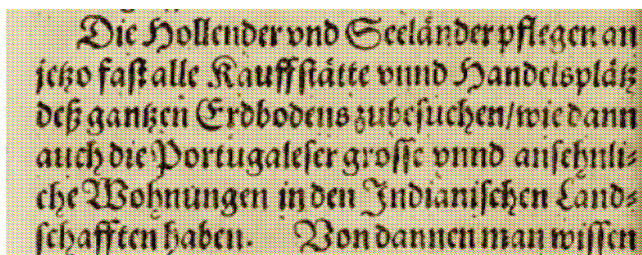 Die Hollender vnd Seeländer pflegen an
jetzo fast alle Kauffstätte vnnd Handelsplätz
deß gantzen Erdbodens zubesuchen/wie dann
auch die Portugaleser grosse vnnd ansehnli-
che Wohnungen in den Indianischen Land-
schafften haben. Von dannen man wissen